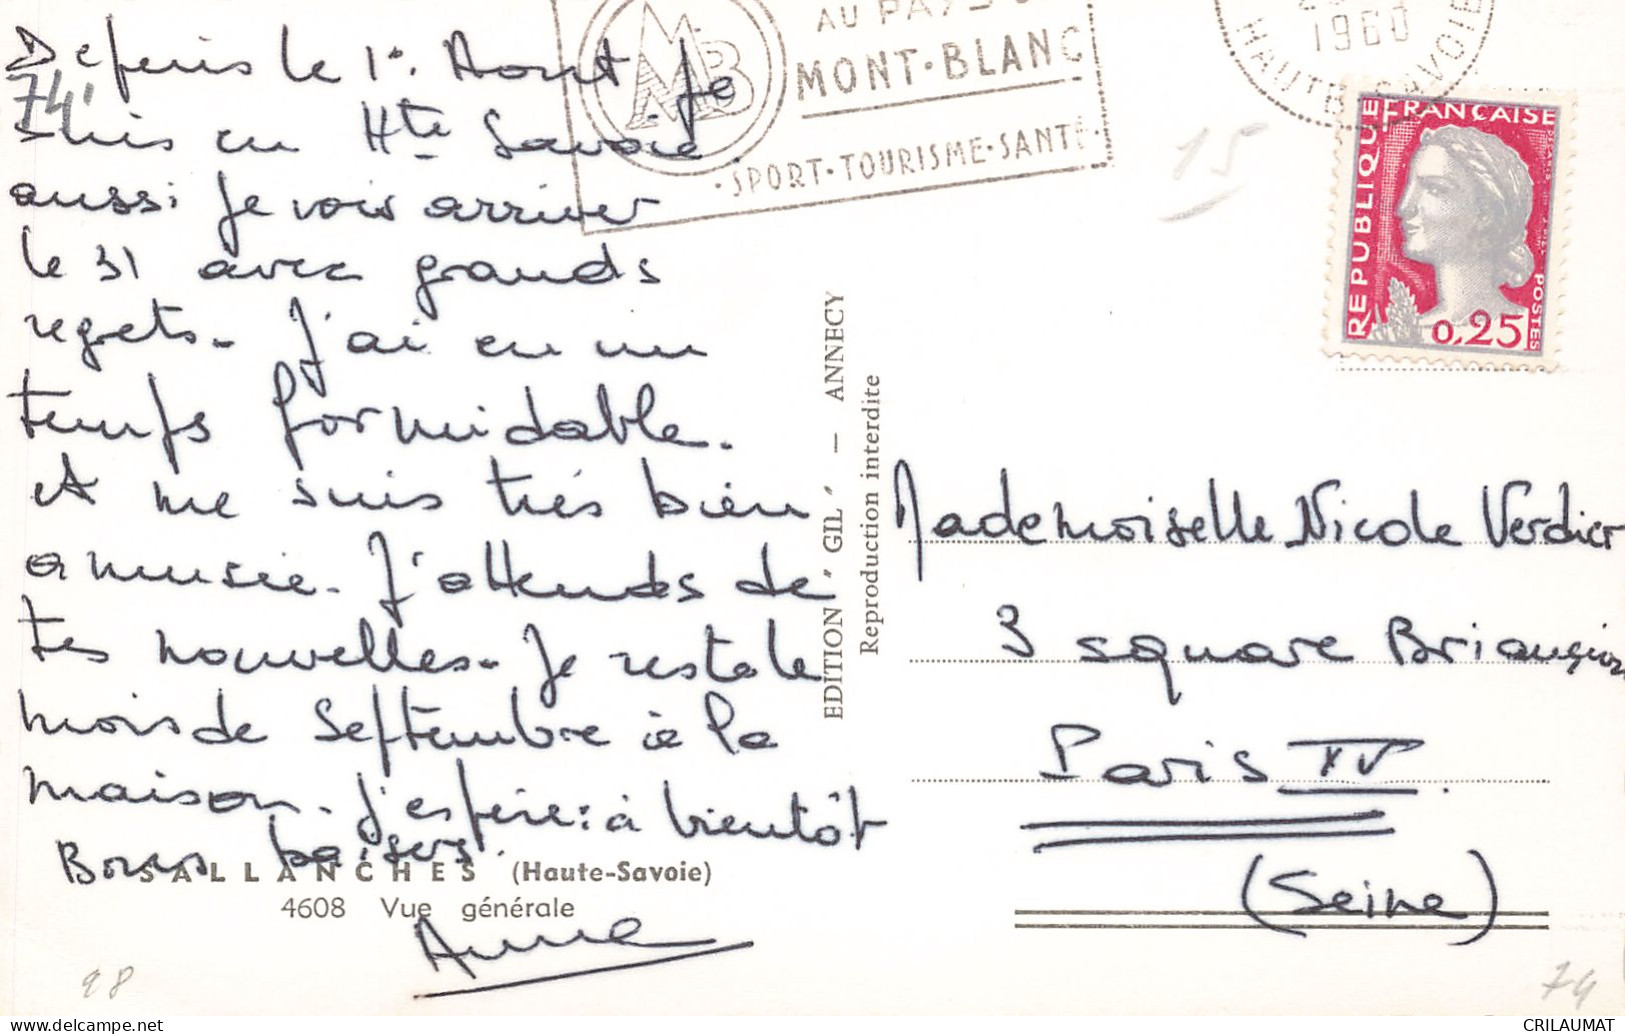 Depuis le 1er Aout je
suis en Hte Savoie.
aussi je vois arriver
le 31 avec grands
regrets. J'ai eu un
temps formidable.
et me suis très bien
amusée. J'attends de
tes nouvelles. Je reste le
mois de Septembre à la
maison. J'espère: à bientôt
Bons baisers.
Anne
74
SALLANCHES (Haute-Savoie)
4608 Vue générale
98
EDITION "GIL" — ANNECY
Reproduction interdite
MB
AU PAYS DU
MONT-BLANC
·SPORT·TOURISME·SANTÉ·
1960
HAUTE SAVOIE
15
REPUBLIQUE FRANÇAISE
0,25
POSTES
Mademoiselle Nicole Verdier
3 square Briançion
Paris XV.
(Seine)
74
CRILAUMAT